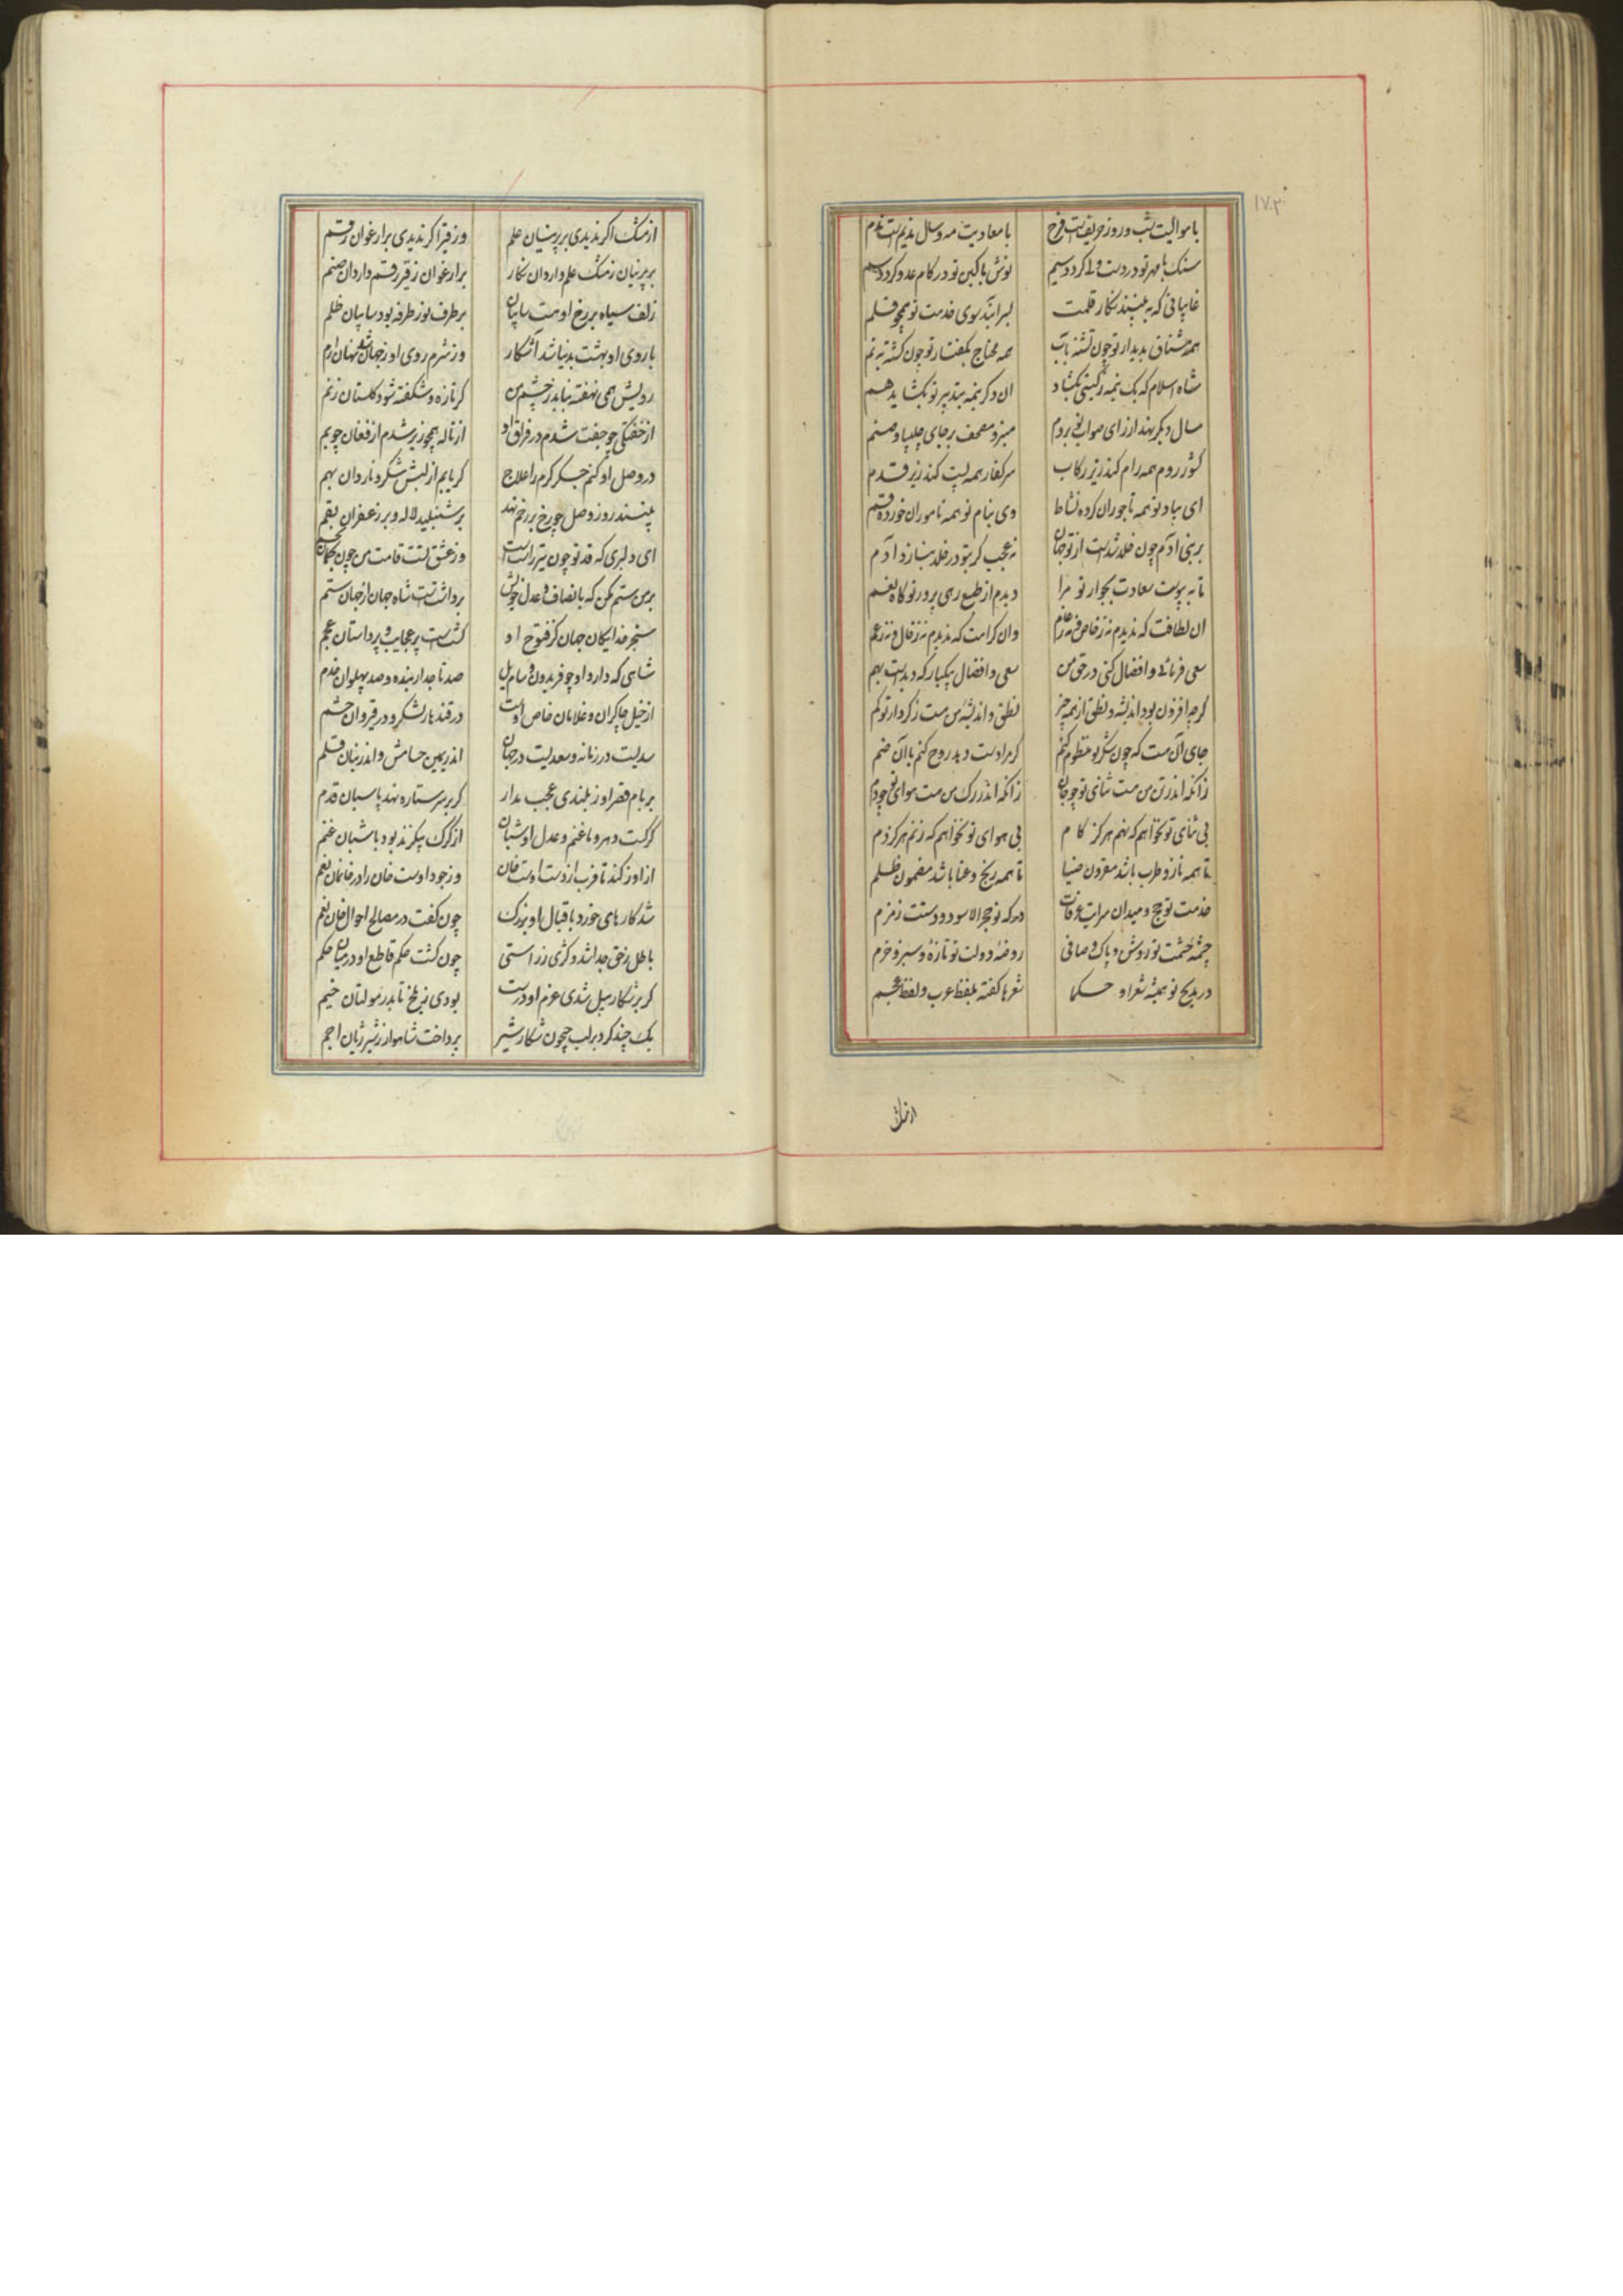 ۱۷۳
با موالیت شب و روز حریفست فرح با معادیت مه و سال ندیمست ندم
سنک با مهر تو در دست ولی کردد سیم نوش با کین تو در کام عدو کردد سم
غایبانی که به بینند نکار قلمت بسر آیند سوی خدمت تو همچو قلم
همه مشتاق بدیدار تو چون تشنه بآب همه محتاج بکفتار تو چون کشته به نم
شاه اسلام که یک نیمه ز کیتی بکشاد ان دکر نیمه بتدبیر تو بکشاید هم
سال دیکر بنهد از رای صواب تو بروم منبر و مصحف بر جای چلیپا و صنم
کشور روم همه رام کند زیر رکاب سر کفار همه پست کند زیر قدم
ای بیاد تو همه تاجوران کرده نشاط وی بنام تو همه ناموران خورده قسم
بر بنی ادم چون خلد شدست از تو جهان نه عجب کر بتو در خلد بنازد آدم
تا به پیوست سعادت بجوار تو مرا دیدم از طبع رهی پرور تو کاه نعم
ان لطافت که ندیدم نه ز خاص و نه ز عام وان کرامت که ندیدم نه ز خال و نه ز عم
سعی فرمائی و افضال کنی در حق من سعی و افضال بیکبار که دیدست بهم
کرچه افزون بود اندیشه و نطق از همه چیز نطق و اندیشه من هست ز کردار تو کم
جای آن هست که چون شکر تو منظوم کنم کر مرا دست دهد روح کنم با آن ضم
زانکه اندر تن من هست ثنای تو چو جان زانکه اندر رک من هست هوای تو چو دم
بی ثنای تو نخواهم که نهم هرکز کام بی هوای تو نخواهم که زنم هرکز دم
تا همه ناز و طرب باشد مقرون ضیا تا همه رنج و عنا باشد مضمون ظلم
خدمت تو حج و میدان سرایت عرفات درکه تو حجر الاسود و دستت زمزم
چشمه حشمت تو روشن و پاک و صافی روضه دولت تو تازه و سبز و خرم
در مدیح تو همیشه شعرا و حکما شعرها کفته بلفظ عرب و لفظ عجم
از مشک
از مشک اکر ندیدی بر پرنیان علم وز قیر اکر ندیدی بر ارغوان رقم
بر پرنیان ز مشک علم دارد ان نکار بر ارغوان ز قیر رقم دارد ان صنم
زلف سیاه بر رخ او هست سایبان بر طرف نور طرفه بود سایبان ظلم
با روی او بهشت بدنیا شد آشکار وز شرم روی او ز جهان شد نهان ارم
رویش همی نهفته نیاید ز چشم من کر تازه و شکفته شود کلستان ز نم
از خفتکی چو جفت شدم در فراق او از ناله همچو زیر شدم از فغان چو بم
در وصل او کنم جکر کرم را علاج کر یابم از لبش شکر و ناردان بهم
بپسندد روز وصل چو رخ بر رخم نهد بر شنبلید لاله و بر زعفران بقم
ای دلبری که قد تو چون تیر راست است وز عشق تست قامت من چون کمان بخم
بر من ستم مکن که بانصاف و عدل خویش برداشتست شاه جهان از جهان ستم
سنجر خدایکان جهان کز فتوح او کشتست پر عجایب و پر داستان عجم
شاهی که دارد او چو فریدون و سام یل صد تاجدار بنده و صد پهلوان خدم
از خیل چاکران و غلامان خاص اوست در قندهار لشکر و در قیروان حشم
سدیست در زمانه و سعدیست در جهان اندر یمین حسامش و اندر بنان قلم
بر بام قصر او ز بلندی عجب مدار کر بر سر ستاره نهد پاسبان قدم
کرکست دهر و ما غنم و عدل او شبان از کرک بی کزند بود با شبان غنم
از اوزکند تا فرب از دست اوست خان وز جود اوست خان را در خانمان نعم
شد کارهای خورد باقبال او بزرک چون کفت در مصالح احوال خان نعم
باطل ز حق جدا شد و کژی ز راستی چون کشت حکم قاطع او در میان حکم
کر بر شکار میل شدی عزم او درست بودی ز بلخ تا بدر مولتان خیم
یک چند کرد بر لب جیحون شکار شیر پرداخت شاهوار ز شیر ژیان اجم